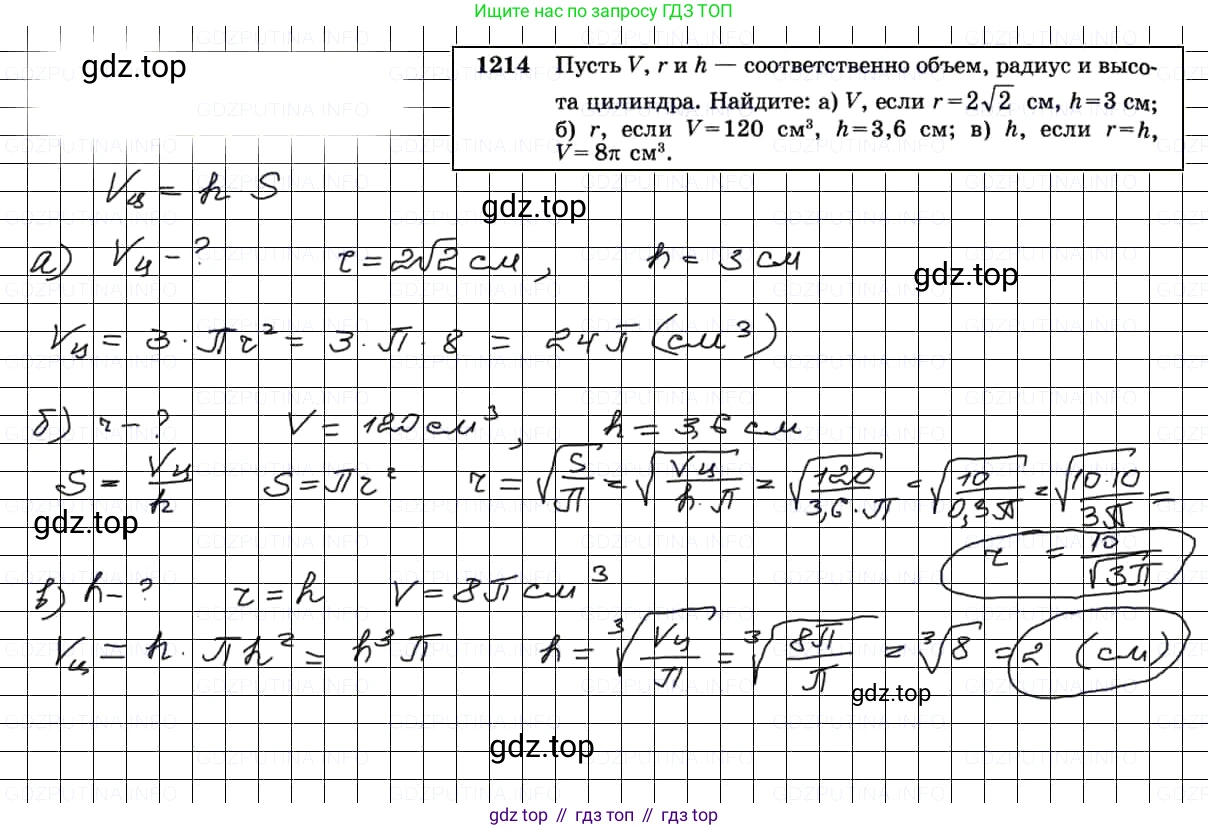 Ищите нас по запросу ГДЗ ТОП
gdz.top
1214 Пусть V, r и h — соответственно объем, радиус и высо-
та цилиндра. Найдите: а) V, если r=2√2 см, h=3 см;
б) r, если V=120 см³, h=3,6 см; в) h, если r=h,
V=8π см³.
Vц = h S
gdz.top
а) Vц - ? r = 2√2 см, h = 3 см
gdz.top
Vц = 3 · πr² = 3 · π · 8 = 24π (см³)
б) r - ? V = 120 см³, h = 3,6 см
S = Vц/h S = πr² r = √(S/π) = √(Vц/(h·π)) = √(120/(3,6·π)) = √(10/(0,3π)) = √(10·10/(3π)) =
gdz.top
r = 10/√(3π)
в) h - ? r = h V = 8π см³
Vц = h · πh² = h³π h = ³√(Vц/π) = ³√(8π/π) = ³√8 = 2 (см)
gdz.top
gdz.top
gdz top // гдз топ // гдз top
GDZPUTINA.INFO